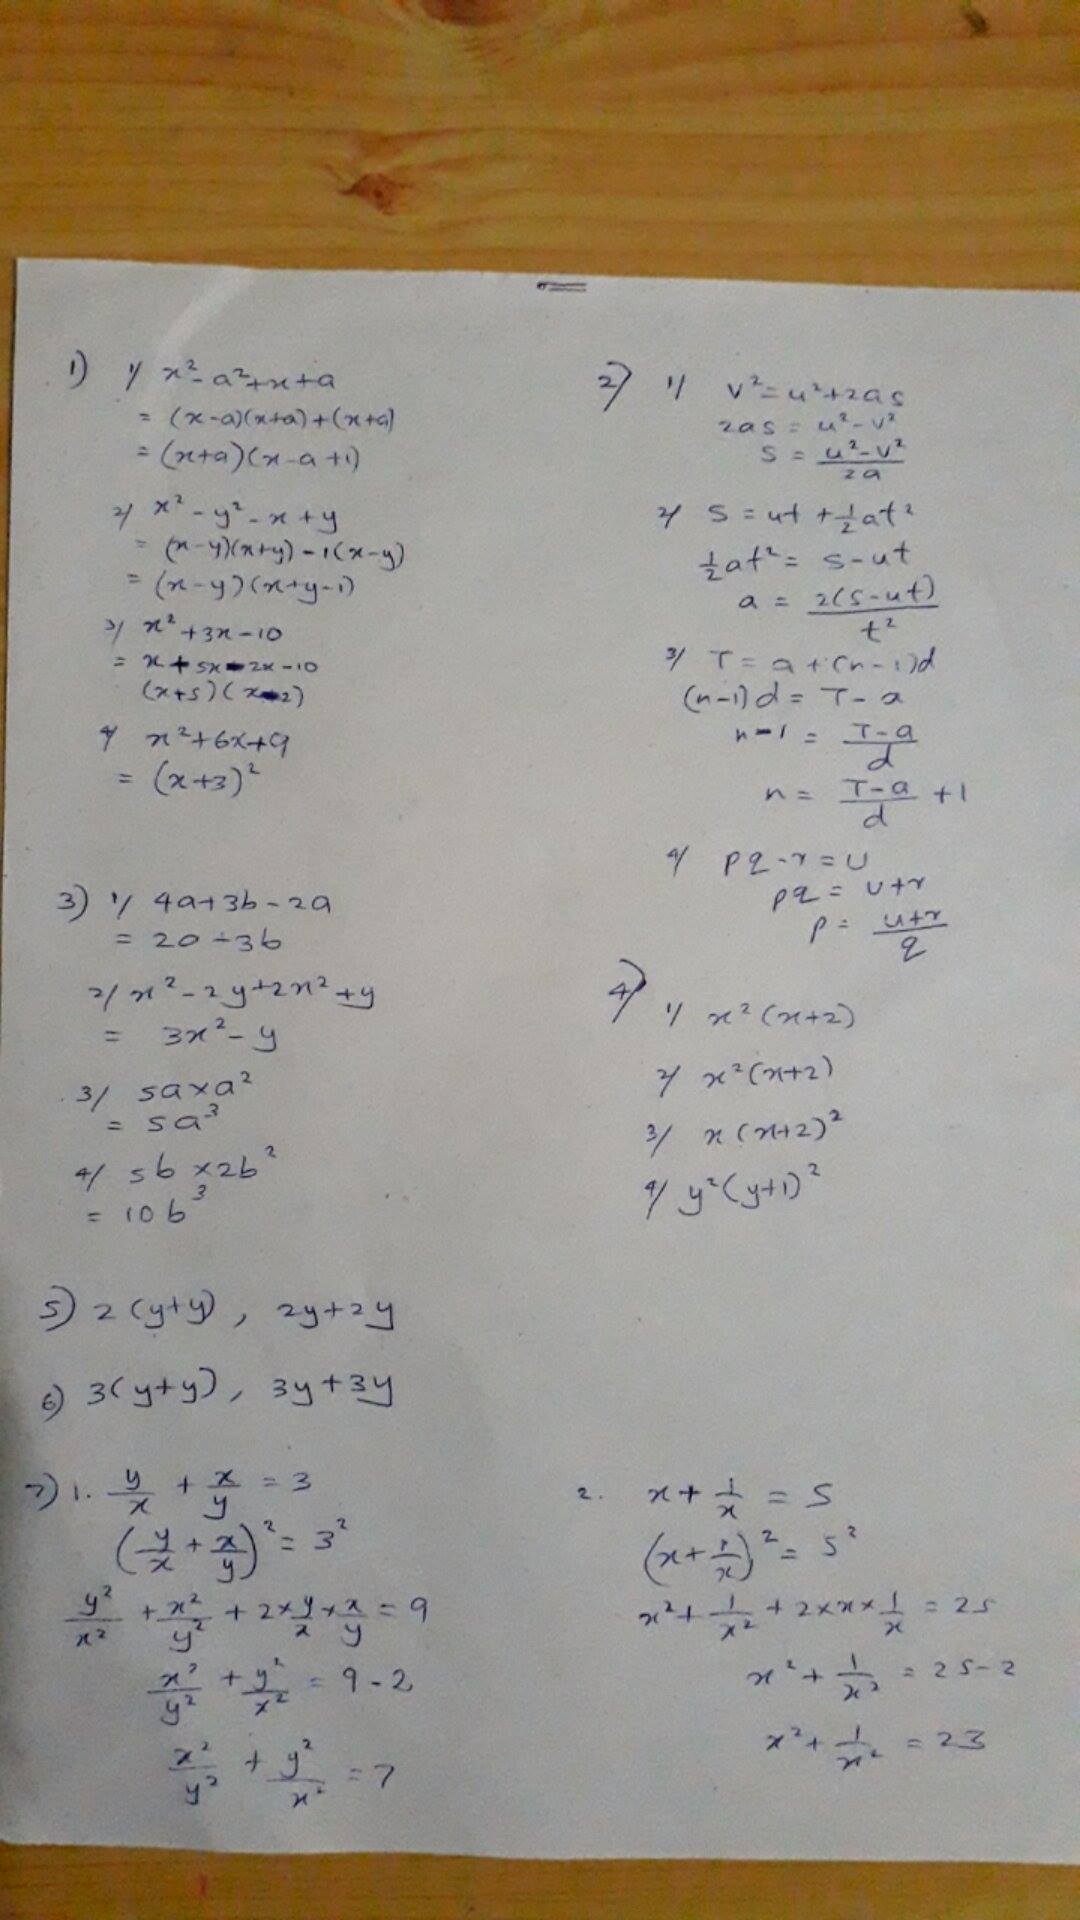 1) 1/ x²-a²+x+a
= (x-a)(x+a)+(x+a)
= (x+a)(x-a+1)
2/ x²-y²-x+y
= (x-y)(x+y)-1(x-y)
= (x-y)(x+y-1)
3/ x²+3x-10
= x+5x-2x-10
(x+5)(x-2)
4/ x²+6x+9
= (x+3)²
2) 1/ v²=u²+2as
2as = u²-v²
s = \frac{u²-v²}{2a}
2/ s = ut + \frac{1}{2}at²
\frac{1}{2}at² = s-ut
a = \frac{2(s-ut)}{t²}
3/ T = a+(n-1)d
(n-1)d = T-a
n-1 = \frac{T-a}{d}
n = \frac{T-a}{d} +1
4/ pq-r=u
pq = u+r
p = \frac{u+r}{q}
3) 1/ 4a+3b-2a
= 2a+3b
2/ x²-2y+2x²+y
= 3x²-y
3/ 5a×a²
= 5a³
4/ 5b×2b²
= 10b³
4) 1/ x²(x+2)
2/ x²(x+2)
3/ x(x+2)²
4/ y²(y+1)²
5) 2(y+y), 2y+2y
6) 3(y+y), 3y+3y
7) 1. \frac{y}{x} + \frac{x}{y} = 3
(\frac{y}{x} + \frac{x}{y})² = 3²
\frac{y²}{x²} + \frac{x²}{y²} + 2×\frac{y}{x}×\frac{x}{y} = 9
\frac{x²}{y²} + \frac{y²}{x²} = 9-2
\frac{x²}{y²} + \frac{y²}{x²} = 7
2. x+\frac{1}{x} = 5
(x+\frac{1}{x})² = 5²
x²+\frac{1}{x²} + 2×x×\frac{1}{x} = 25
x²+\frac{1}{x²} = 25-2
x²+\frac{1}{x²} = 23